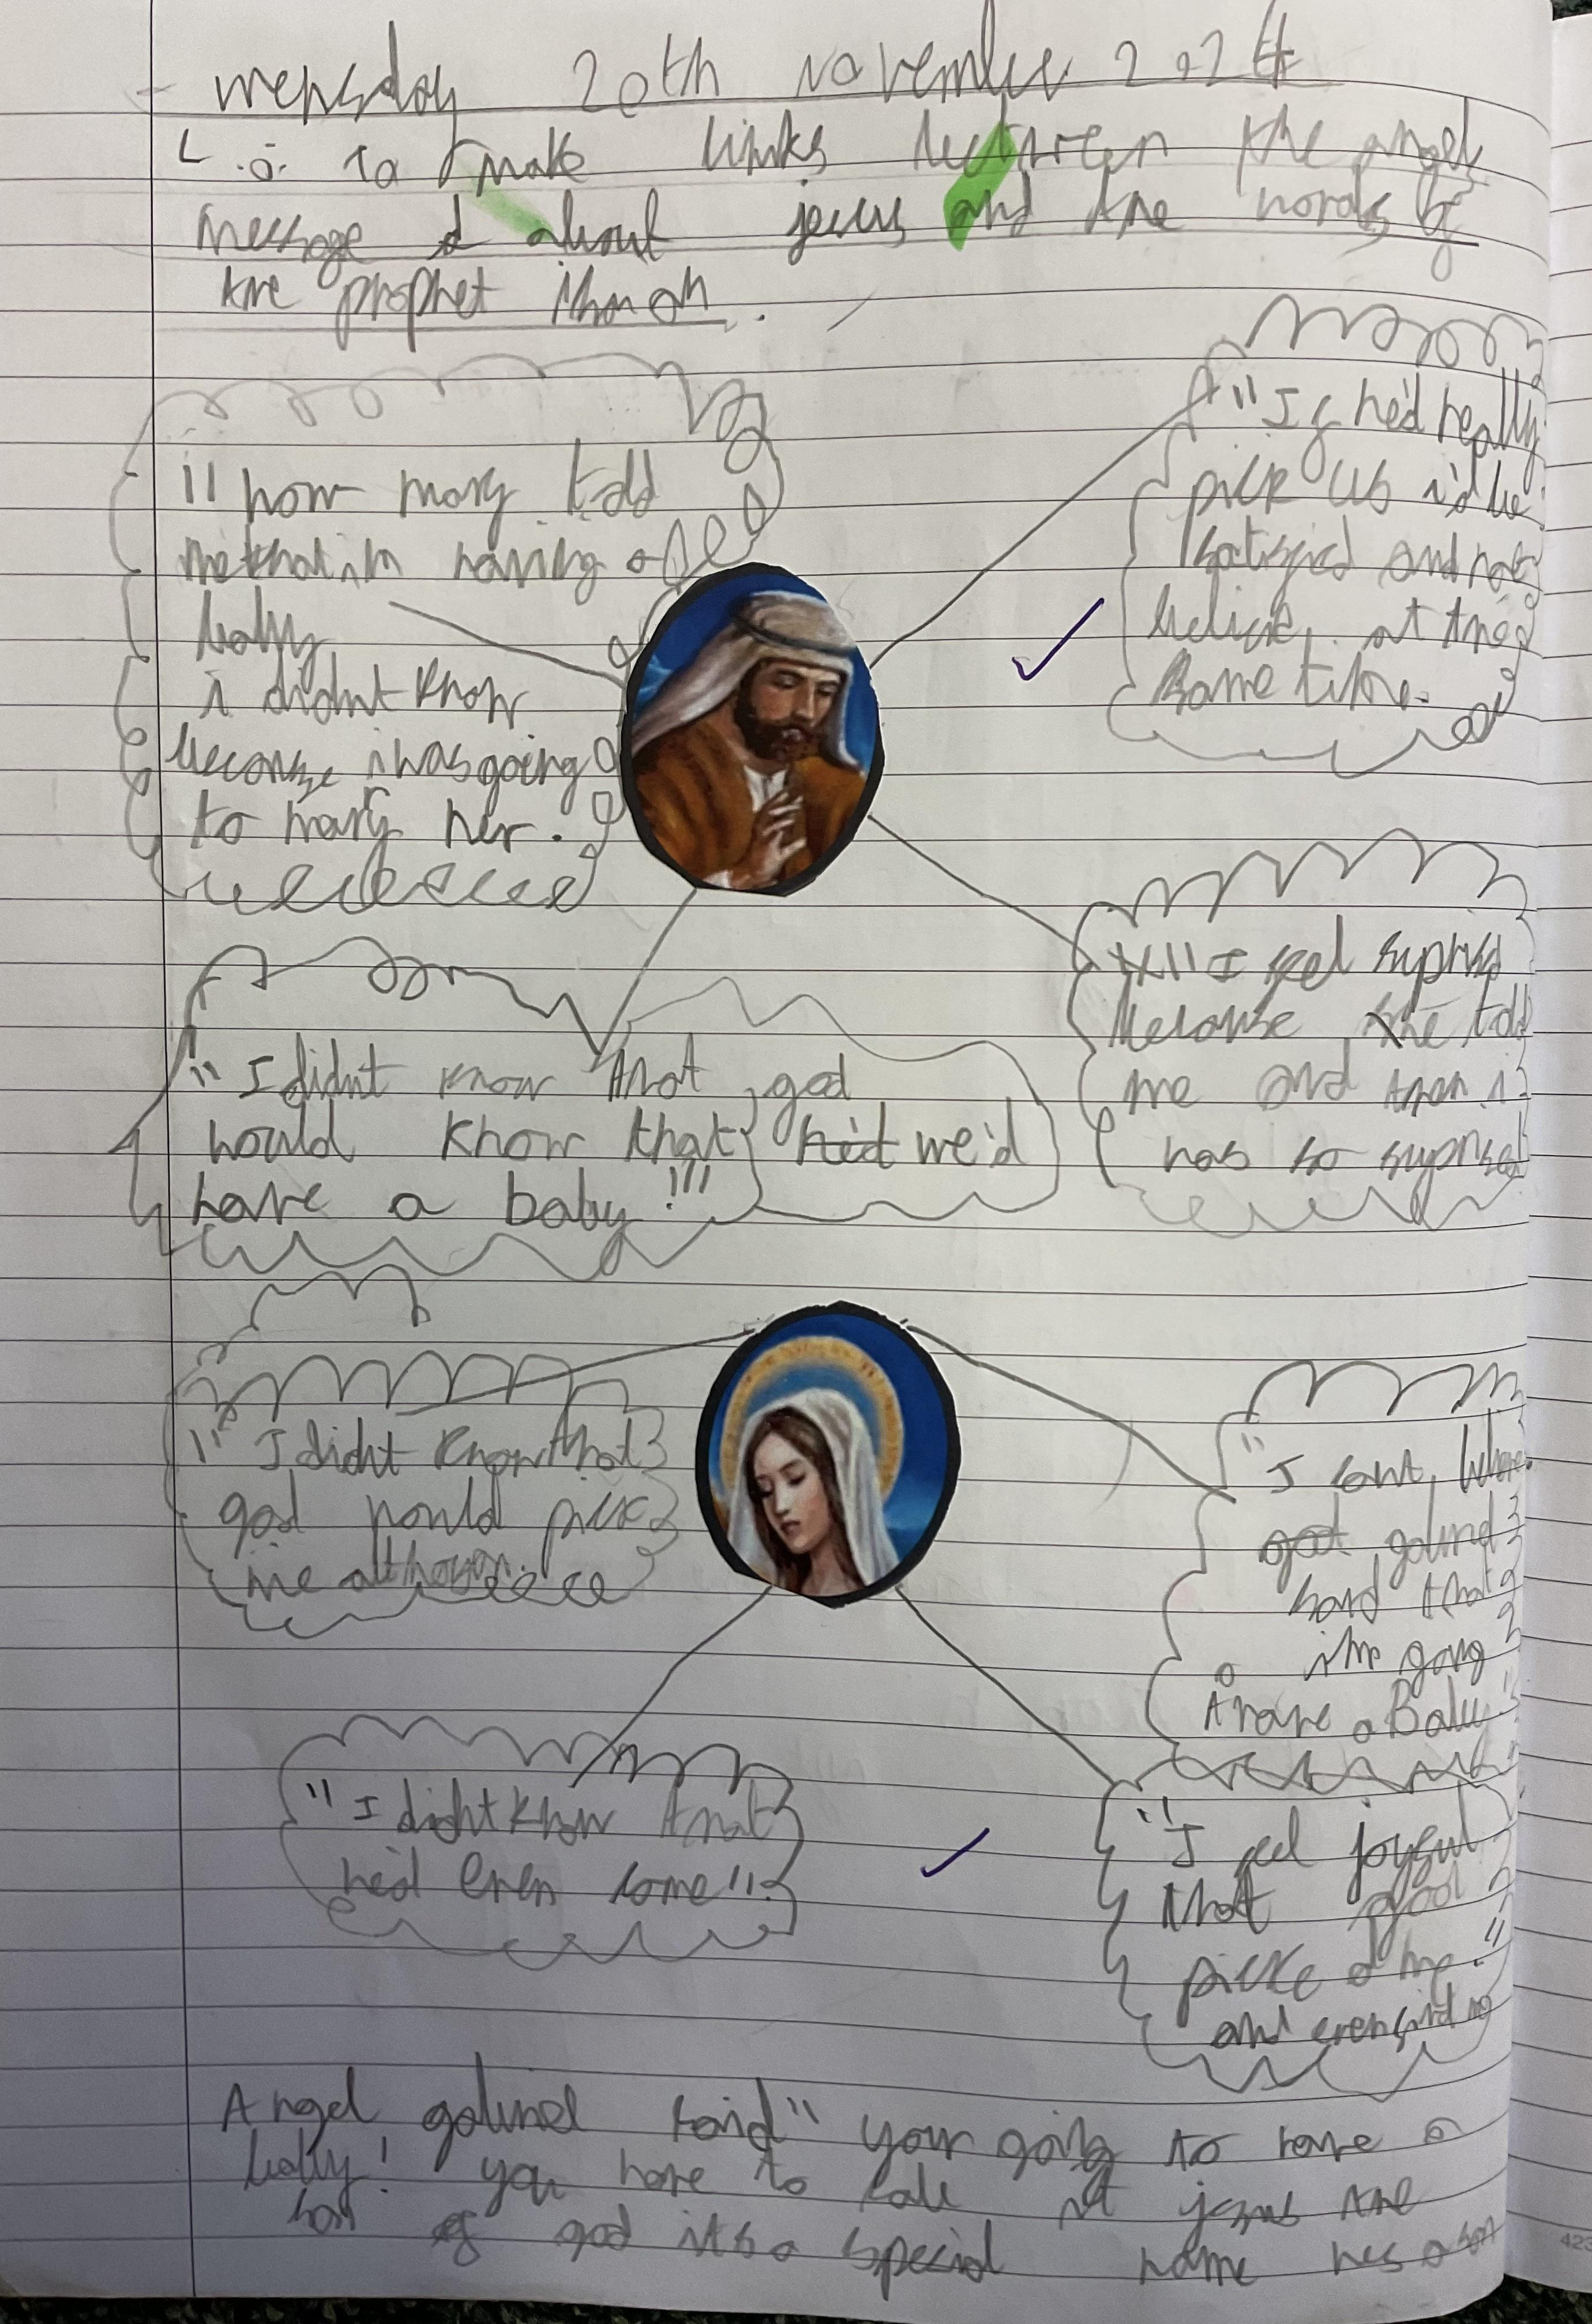 wensday 20th november 2024
L.o: To make links between the angel
message about jesus and the words of
the prophet
"If he'd really
pick us i'd be
satisfied and not
belive at the
same time.
"how mary told
me that im having a
baby
i didnt know
because i was going
to mary her.
"I feel suprised
because she told
me and then i
was so suprised
"I didnt know that god
would know that we'd
have a baby!!!
"I didnt know that
god would pick
me
"I
gabriel
said that
im going
a Baby"
"I didnt know that
he'd even come"
"I feel joyful
that god
picked me."
and even
Angel gabriel said" your going to have a
baby! you have to call it jesus the
son of god its a special name hes a son
423